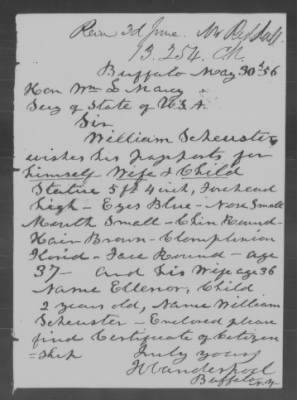 Recd 3d June. Mr Reddall
13.254. Ch.
Buffalo May 30th 56
Hon Wm L Marcy
Secy of State of U.S.A
Sir
William Scheuster
wishes his passports for
himself Wife & Child
Stature 5 ft 4 inch, Forehead
high - Eyes Blue - Nose Small
Mouth Small - Chin Round -
Hair Brown - Complexion
Florid - Face Round - age
37 - and his Wife age 36
Name Ellenor, Child
2 years old, Name William
Scheuster - Enclosed please
find Certificate of Citizen
=ship
Truly yours
Vanderpoel
Buffalo N.Y.